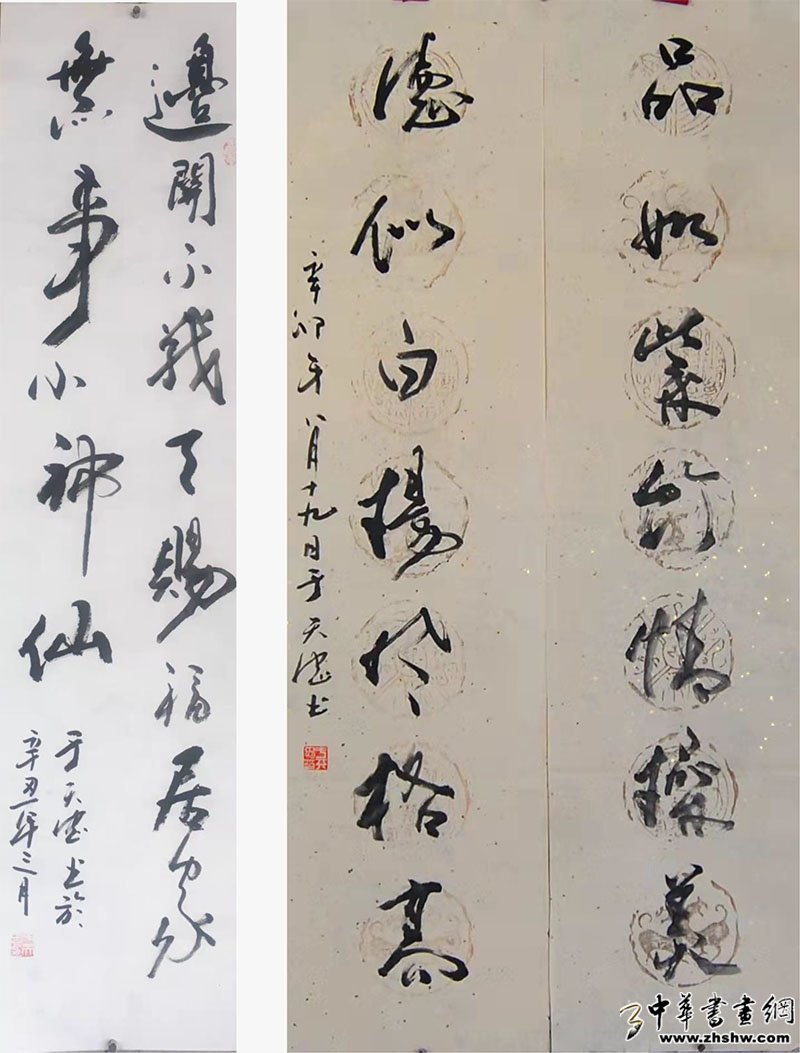 邊關不戰天賜福居家
無事小神仙
于天德书於
辛丑年三月
品如紫竹情操美
德似白楊风格高
辛卯年八月十九日于天德书
中華書畫網
www.zhshw.com